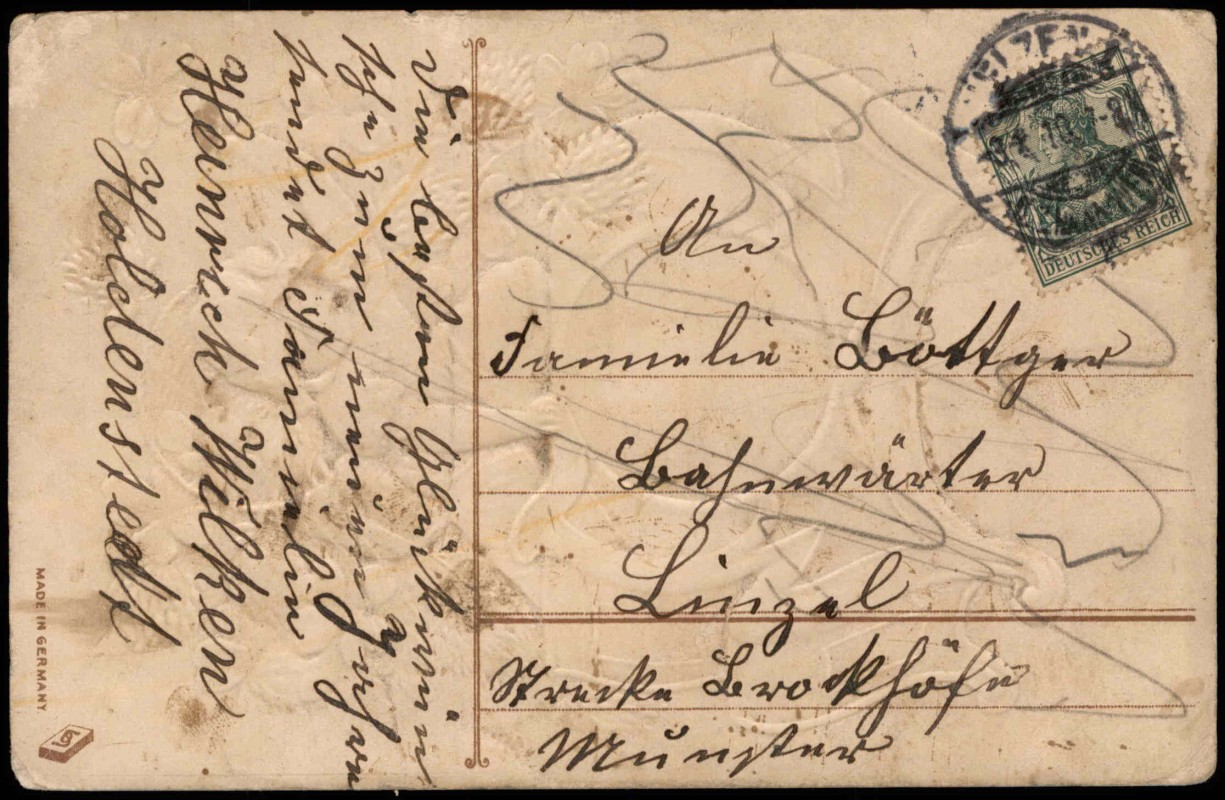 Die besten Glückwün
sche Zum neuen Jahre
sendet Familie
Heinrich Wilken
Holdenstedt
MADE IN GERMANY.
UELZEN
DEUTSCHES REICH
An
Famielie Böttger
Bahnwärter
Linzel
Strecke Brockhöfe
Munster